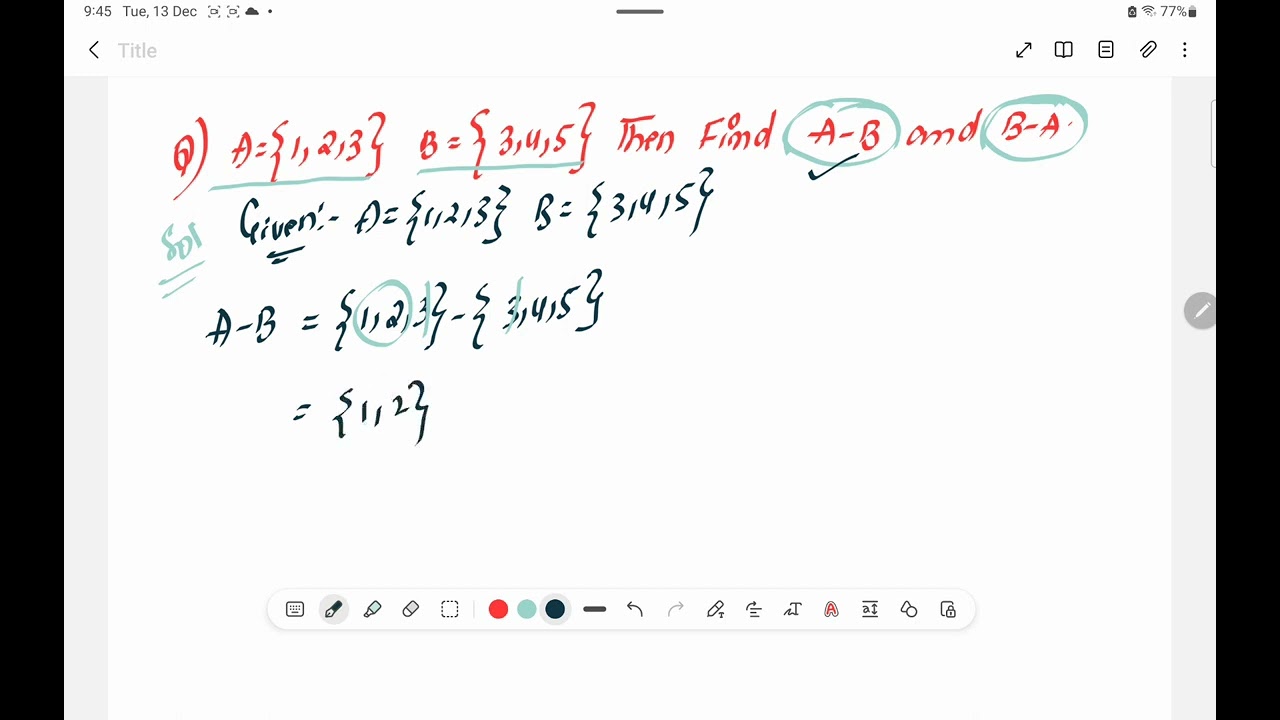 9:45 Tue, 13 Dec 77%
Title
Q) A={1,2,3} B={3,4,5} Then Find A-B and B-A.
Sol Given:- A={1,2,3} B={3,4,5}
A-B = {1,2,3}-{3,4,5}
= {1,2}